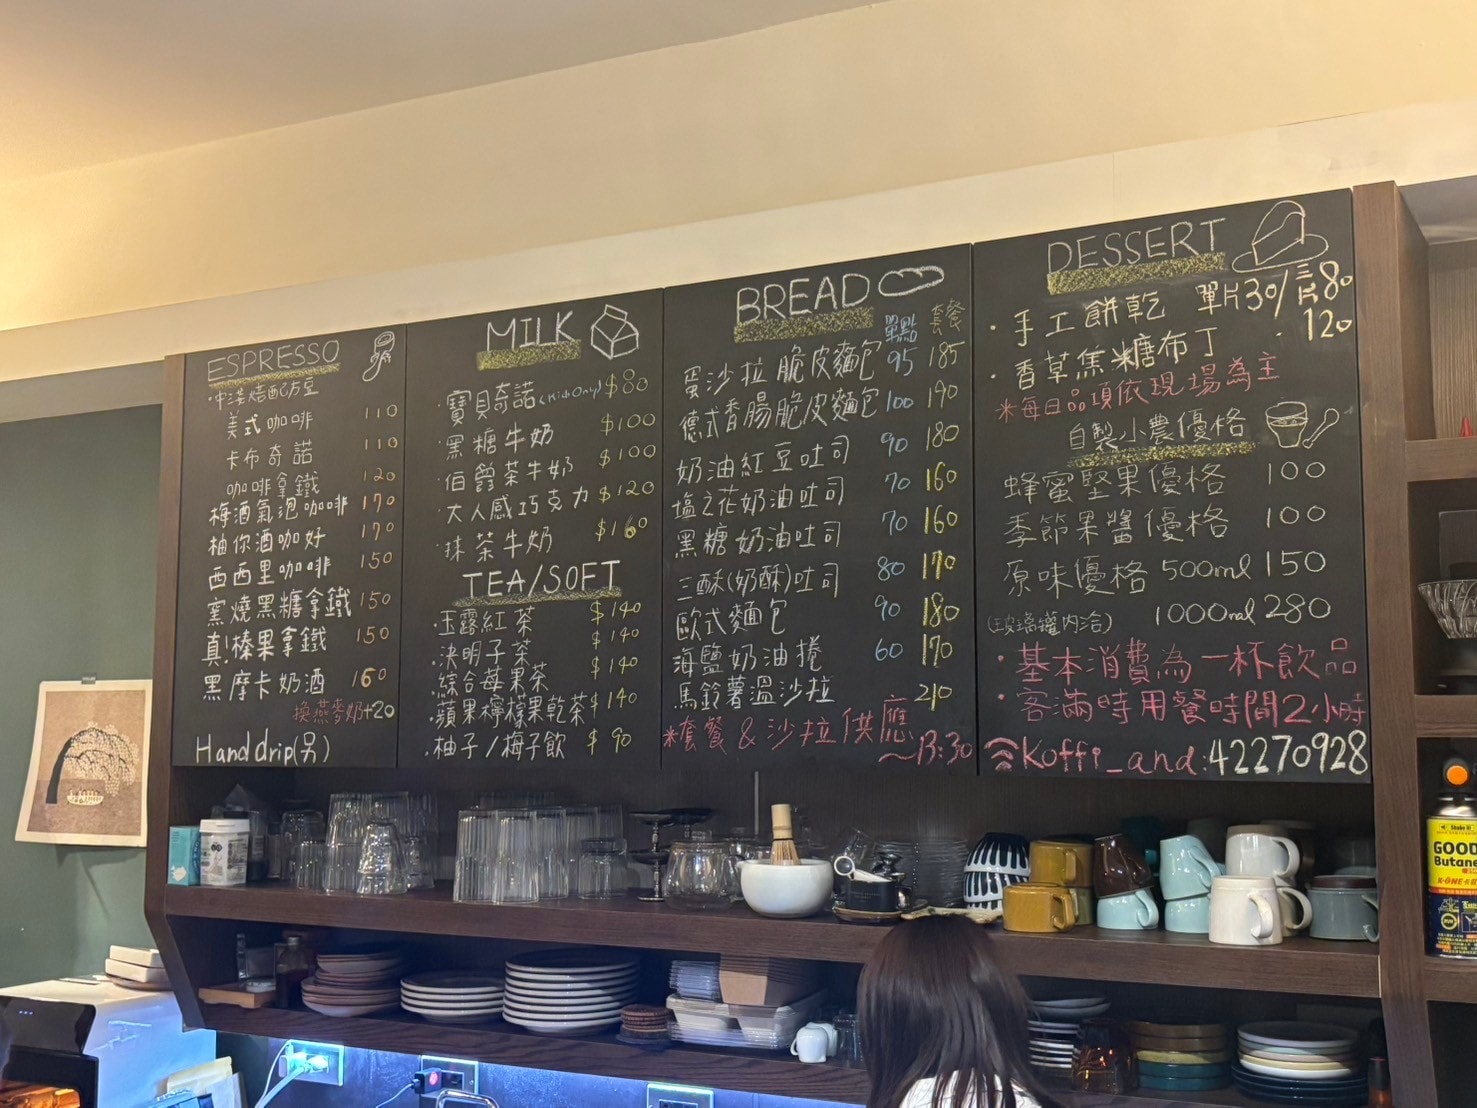 ESPRESSO
·中淺焙配方豆
美式咖啡 110
卡布奇諾 110
咖啡拿鐵 120
梅酒氣泡咖啡 170
柚你酒咖好 170
西西里咖啡 150
窯燒黑糖拿鐵 150
真!榛果拿鐵 150
黑摩卡奶酒 160
換燕麥奶+20
Hand drip(另)
MILK
·寶貝奇諾(kid only) $80
·黑糖牛奶 $100
·伯爵茶牛奶 $100
·大人感巧克力 $120
·抹茶牛奶 $160
TEA/SOFT
·玉露紅茶 $140
·決明子茶 $140
·綜合莓果茶 $140
·蘋果檸檬果乾茶 $140
·柚子/梅子飲 $90
BREAD
單點 套餐
蛋沙拉脆皮麵包 95 185
德式香腸脆皮麵包 100 190
奶油紅豆吐司 90 180
塩之花奶油吐司 70 160
黑糖奶油吐司 70 160
三酥(奶酥)吐司 80 170
歐式麵包 90 180
海鹽奶油捲 60 170
馬鈴薯溫沙拉 210
*套餐&沙拉供應~13:30
DESSERT
·手工餅乾 單片30/三片80
·香草焦糖布丁 120
*每日品項依現場為主
自製小農優格
蜂蜜堅果優格 100
季節果醬優格 100
原味優格 500ml 150
(玻璃罐內洽) 1000ml 280
·基本消費為一杯飲品
·客滿時用餐時間2小時
Koffi_and:42270928
GOOD
Butane
K-ONE